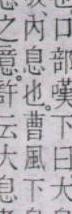 也口部嘆下曰大
故內息也曹風下
之意許云大息